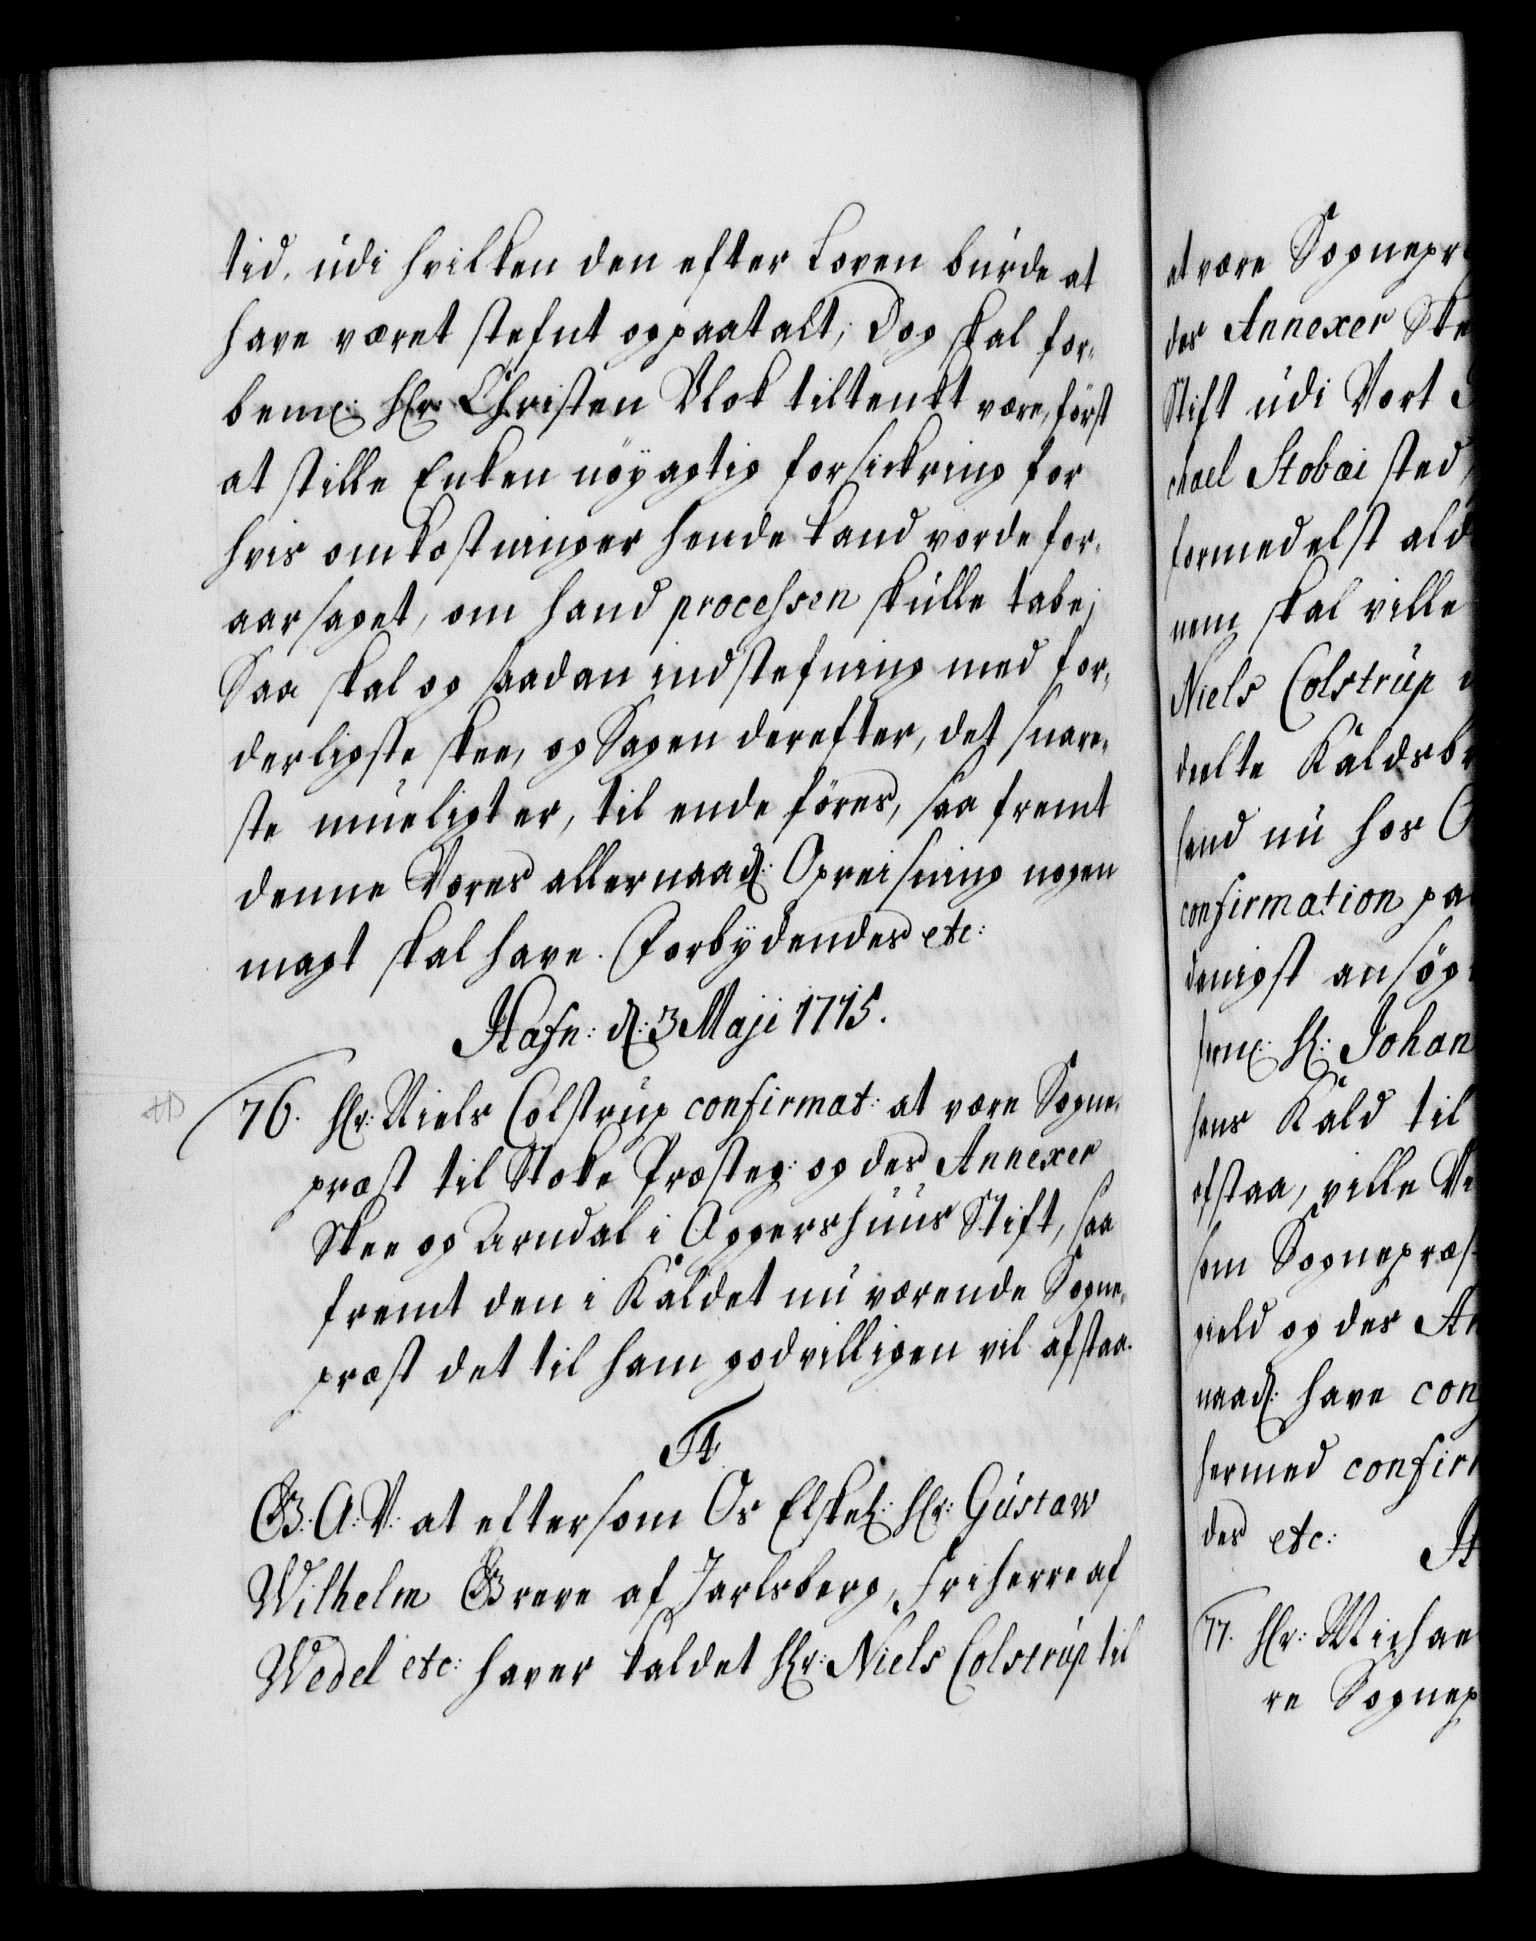 tid, udi hvilken den efter Loven burde at
have været stefnt og paatalt; Dog skal for-
bem: Hr: Christen Blok tiltenkt være, först
at stille Enken nöyagtig forsickring for
hvis omkostninger hende kand vorde for-
aarsaget, om hand processen skulle tabe;
Saa skal og saadan indstefning med for-
derligste skee, og Sagen derefter, det snare-
ste mueligt er, til ende föres, saa fremt
denne Vores allernaad: Opreisning nogen
magt skal have. Forbydendes etc:
Hafn: d: 3 Maji 1715.
76. Hr: Niels Colstrup confirmat: at være Sogne-
præst til Stoke Præsteg: og des Annexer
Skee og Arndal i Aggershuus Stift, saa
fremt den i Kaldet nu værende Sogne-
præst det til ham godvilligen vil afstaa.
F4
G. A. V: at eftersom Os Elskel: Hr: Gustaw
Wilhelm Greve af Jarlsberg, Friherre af
Wedel etc: haver kaldet Hr: Niels Colstrup til
at være Sognepr
des Annexer Ske
Stift udi Vort
chael Stobæi sted
formedelst ald
nem skal ville
Niels Colstrup
deelte Kaldsbr
hand nu hos O
confirmation paa
danigst ansøg
bem: H: Johan
hans Kald til
afstaa, ville Vi
som Sognepræst
gield og des An
naad: have con
hermed confir
des etc: F4
77. Hr: Michae
re Sognep